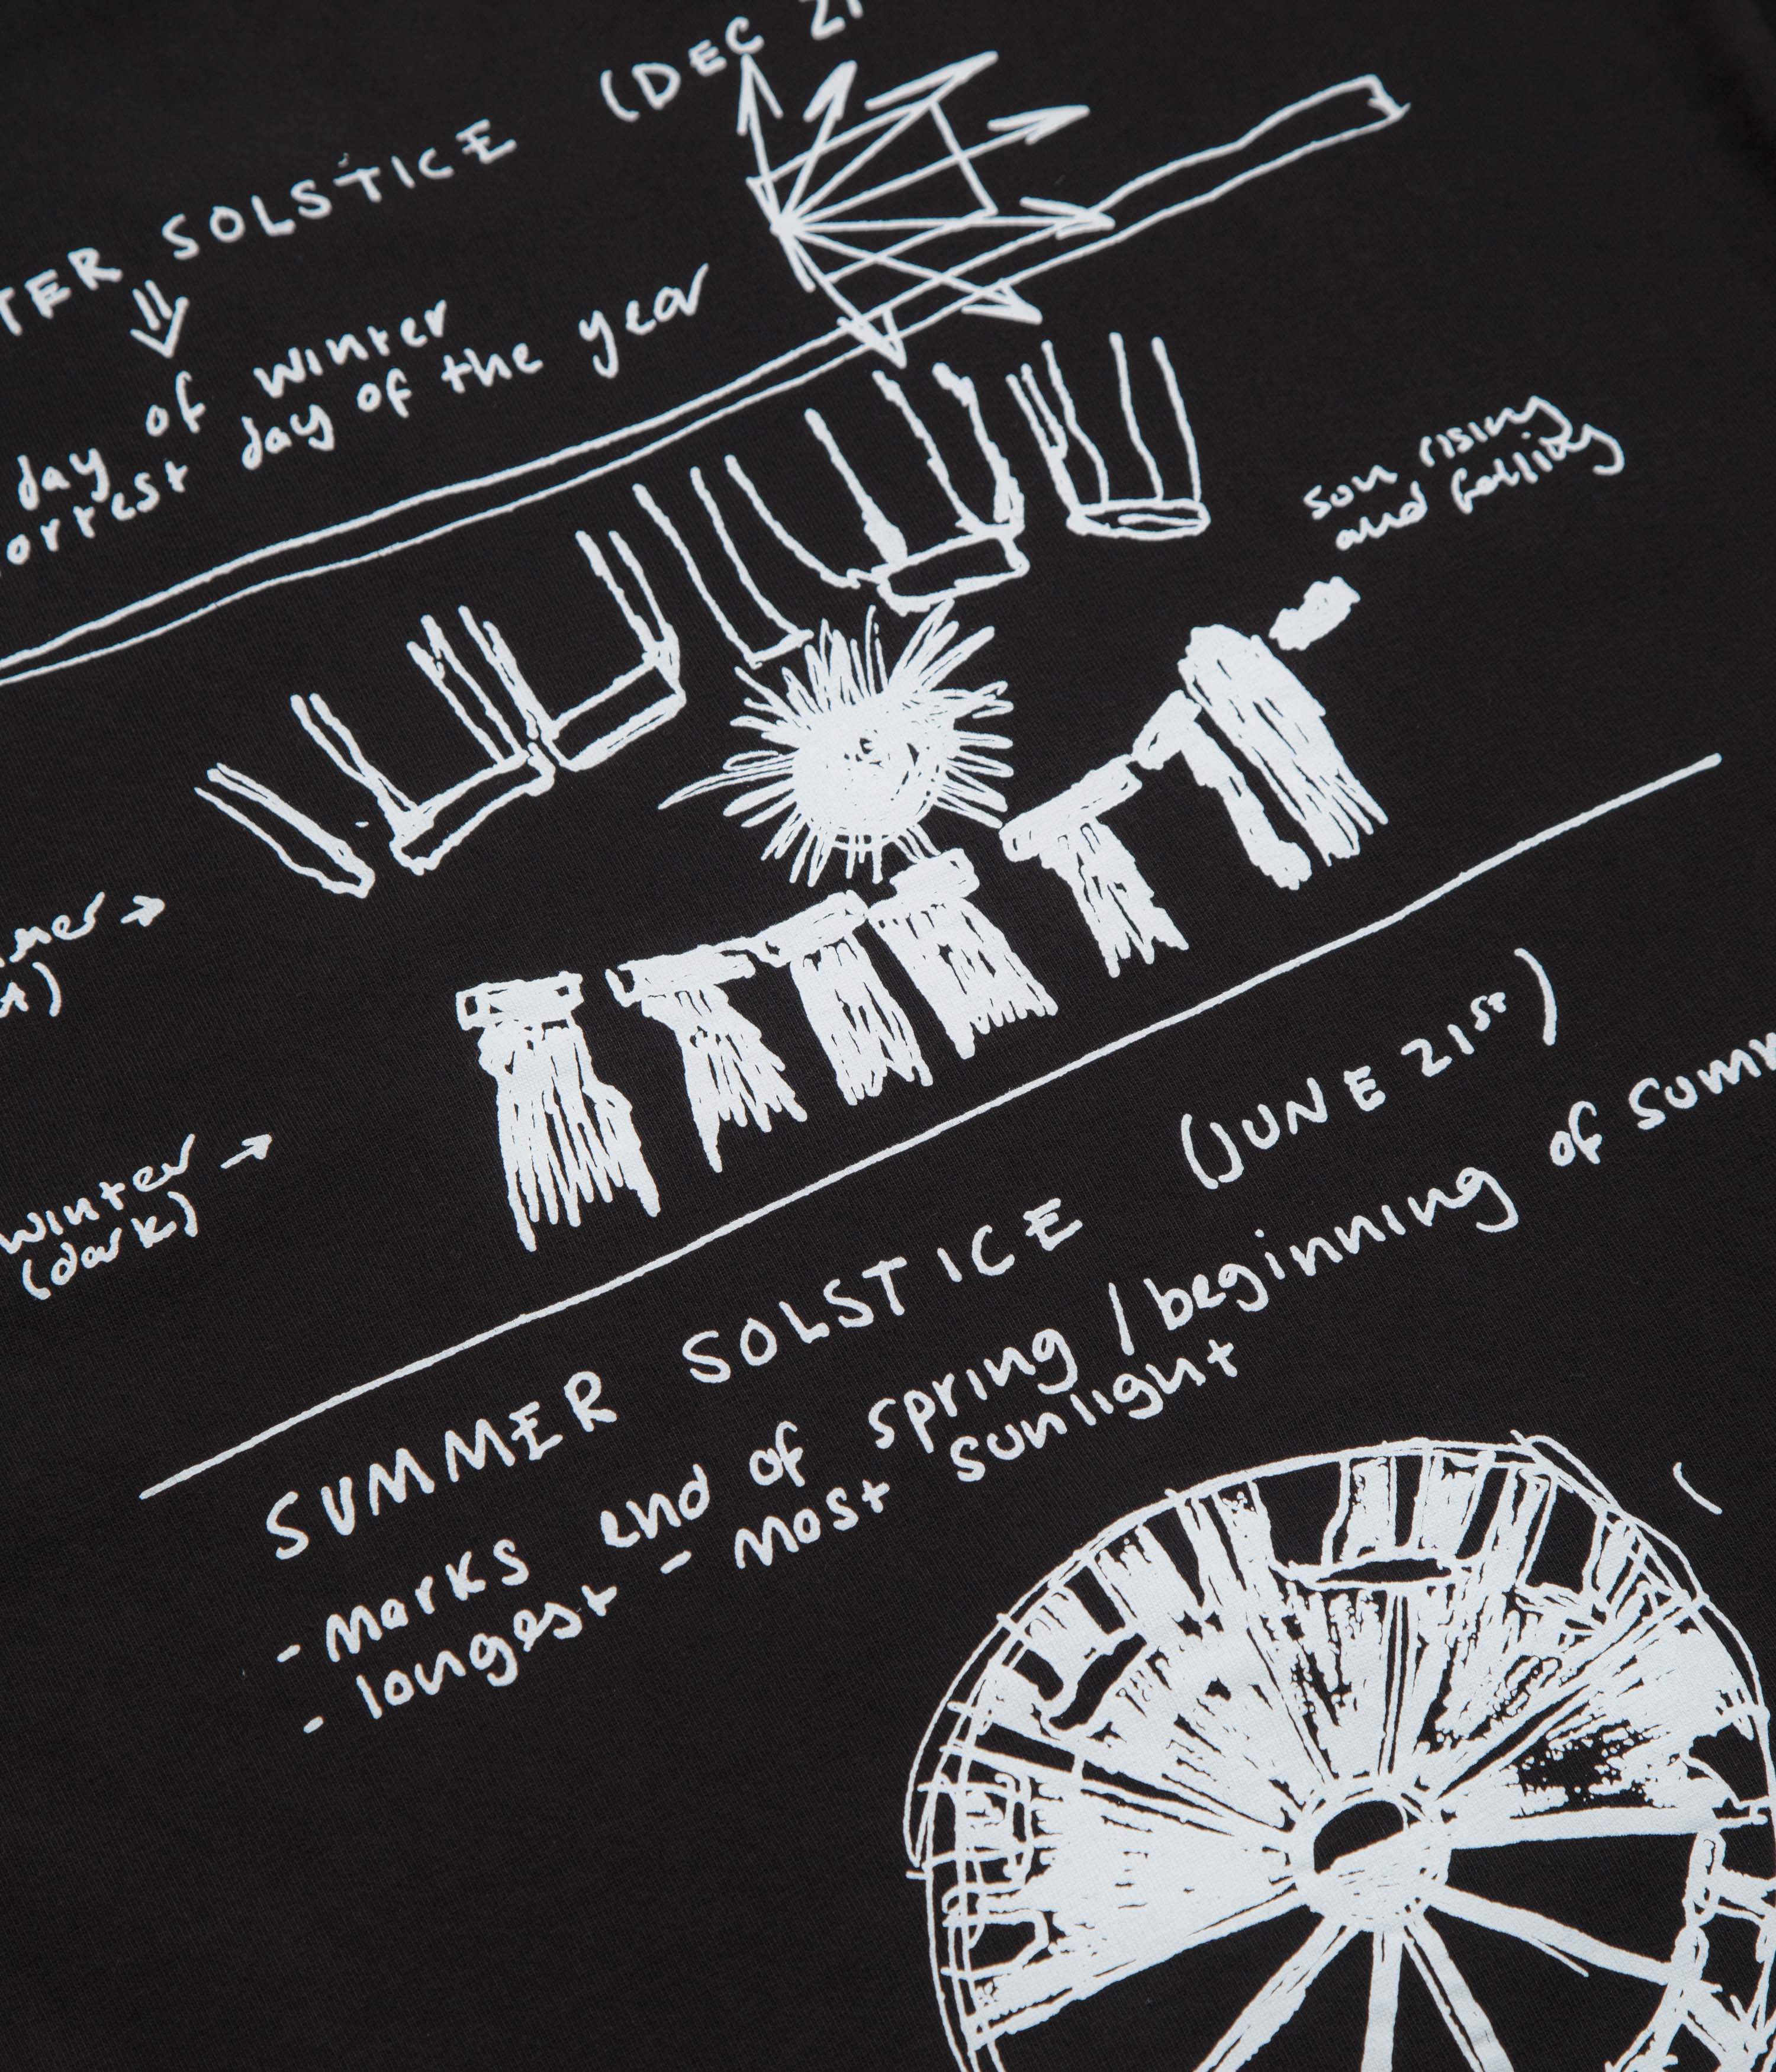 TER SOLSTICE (DEC 21
day of winter
orrest day of the year
sun rising
and falling
winter →
(dark)
SUMMER SOLSTICE (JUNE 21ST)
- marks end of spring / beginning of summ
- longest - most sunlight